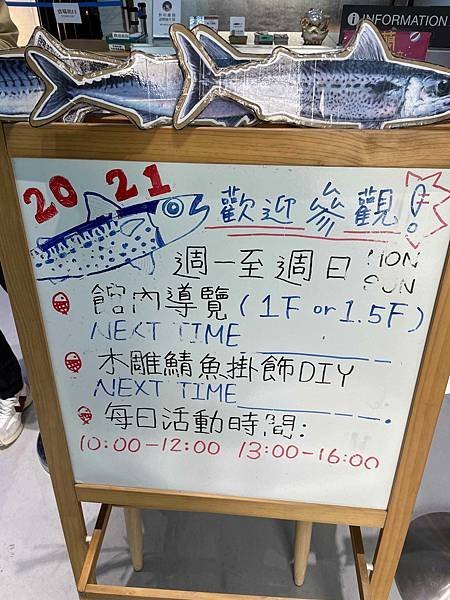 INFORMATION
2021
歡迎參觀!
週一至週日 MON SUN
館內導覽(1F or 1.5F)
NEXT TIME
木雕鯖魚掛飾DIY
NEXT TIME
每日活動時間:
10:00-12:00 13:00-16:00